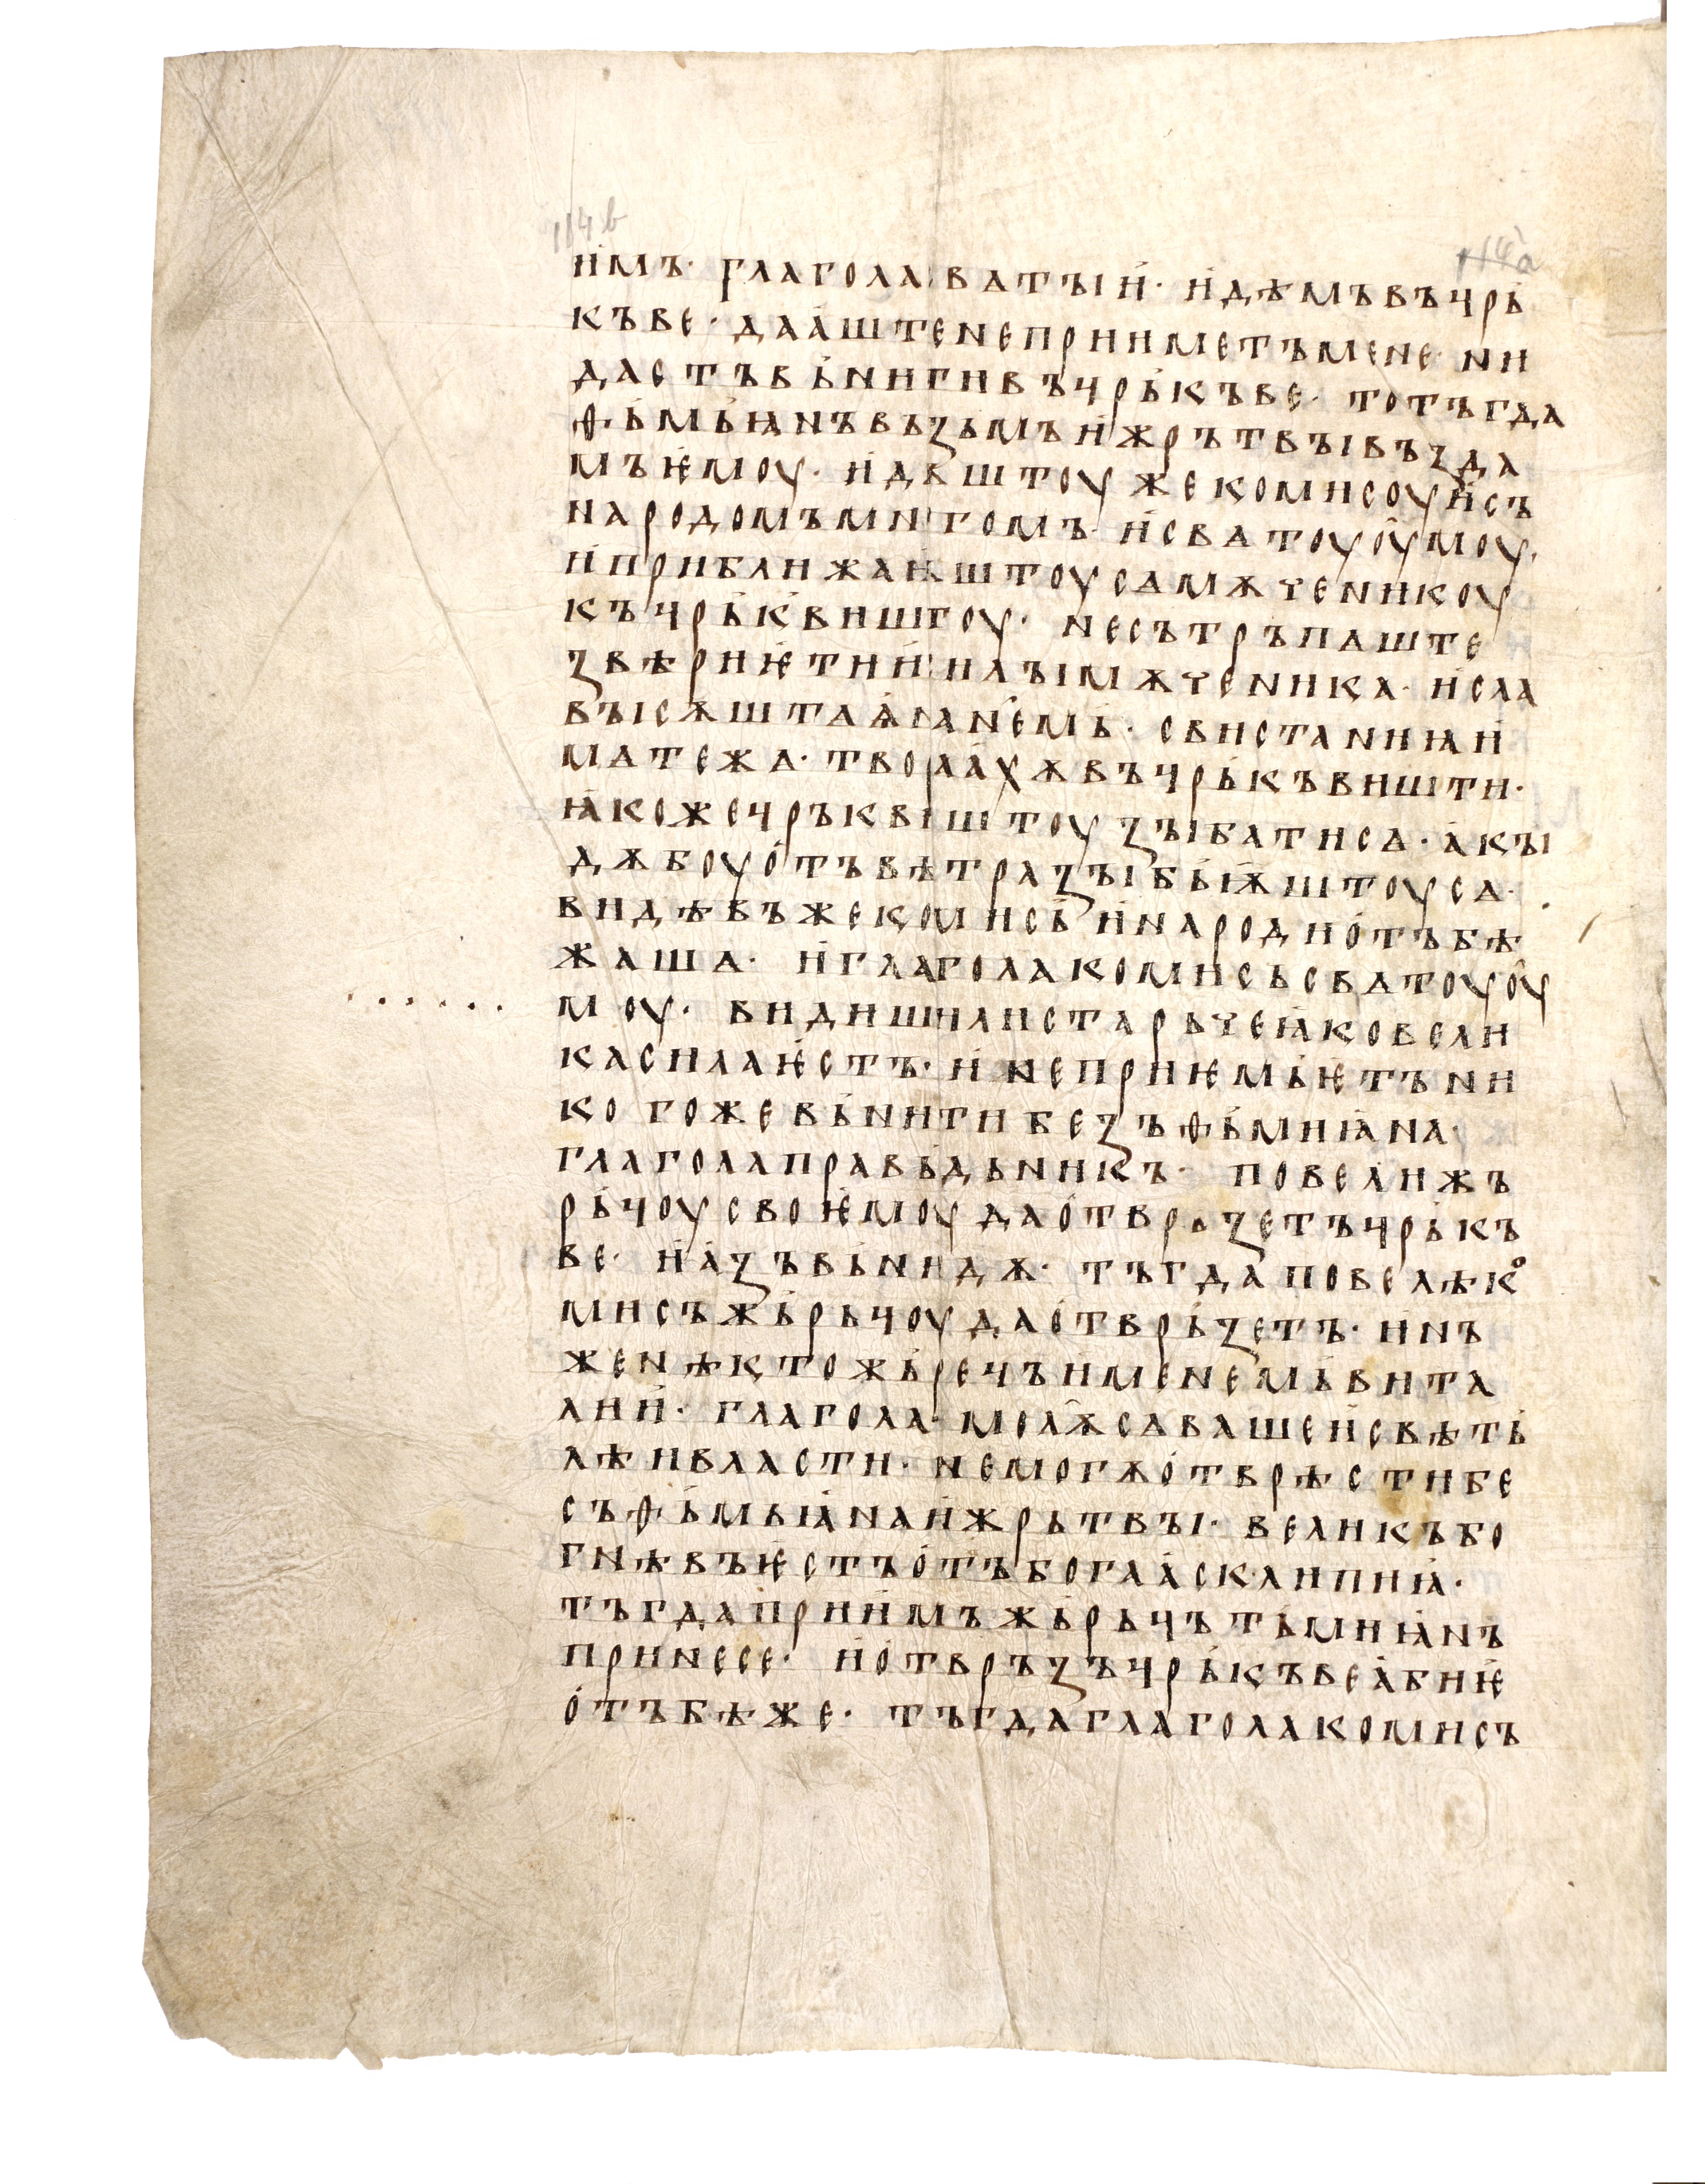 114b
114a
и҆мъ· глагола свѧтыи҆· и҆дѣмъ въ чрь
къве· да а҆ште не прииметъ мене· ни
дастъ вьнити въ чрькъве· то тъгда
ѳьмьꙗнъ възьмъ и҆ жрътвы възда
мъ ѥ҆моу· и҆дѫштоу же комисоу и҆ съ
народомъ многомъ и҆ свѧтоуоумоу·
и҆ приближаѭштоу сѧ мѫченикоу
къ чрькъвиштоу· не сътръпѧште
звѣриѥ ти и҆ силы мѫченика· и҆ сла
вы сѫштаѧ на немь· свистаниꙗ и҆
мѧтежа· творꙗахѫ въ чрькъвишти·
ꙗ҆коже чръквиштоу зыбати сѧ· а҆кы
дѫбоу о҆тъ вѣтра зыбьѭштоу сѧ·
видѣвъ же комисъ и҆ народи о҆тъбѣ
жашѧ· и҆ глагола комисъ свѧтоуоу
моу· видиши ли старьче ꙗ҆ко вели
ка сила ѥ҆стъ· и҆ не приѥмьѥтъ ни
когоже вьнити безъ ѳьмиꙗ҆на·
глагола правьдьникъ· повели жъ
рьчоу своѥмоу да о҆тврьзетъ чрькъ
ве· и҆ а҆зъ вьнидѫ· тъгда повелѣ ко
мисъ жьрьчоу да о҆тврьзетъ· и҆нъ
же нѣкто жьречъ именемь вита
лии҆· глагола· молѭ сѧ вашеи҆ свѣть
лѣи власти· не могѫ о҆тврѣсти бе
съ ѳьмьꙗ҆на и҆ жрьтвы· великъ бо
гнѣвъ ѥ҆стъ о҆тъ бога а҆склипиꙗ҆·
тъгда прии҆мъ жьрьчъ тьмиꙗ҆нъ
принесе· и҆ о҆твръзъ чрькъве а҆биѥ
о҆тъбѣже· тъгда глагола комисъ